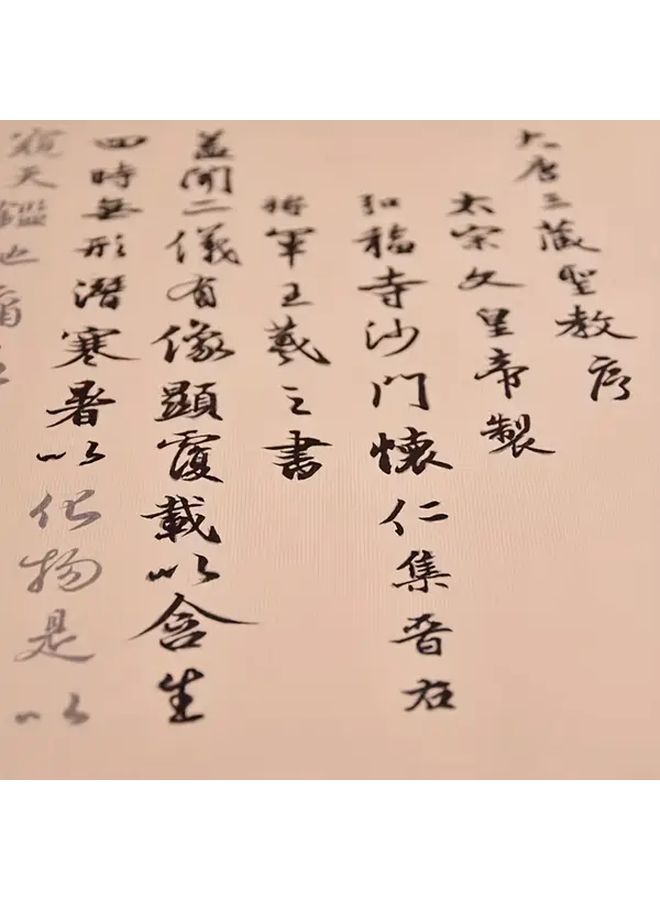 大唐三藏聖教序
太宗文皇帝製
弘福寺沙門懷仁集晉右
將軍王羲之書
蓋聞二儀有像顯覆載以含生
四時無形潛寒暑以化物是以
窺天鑑地庸